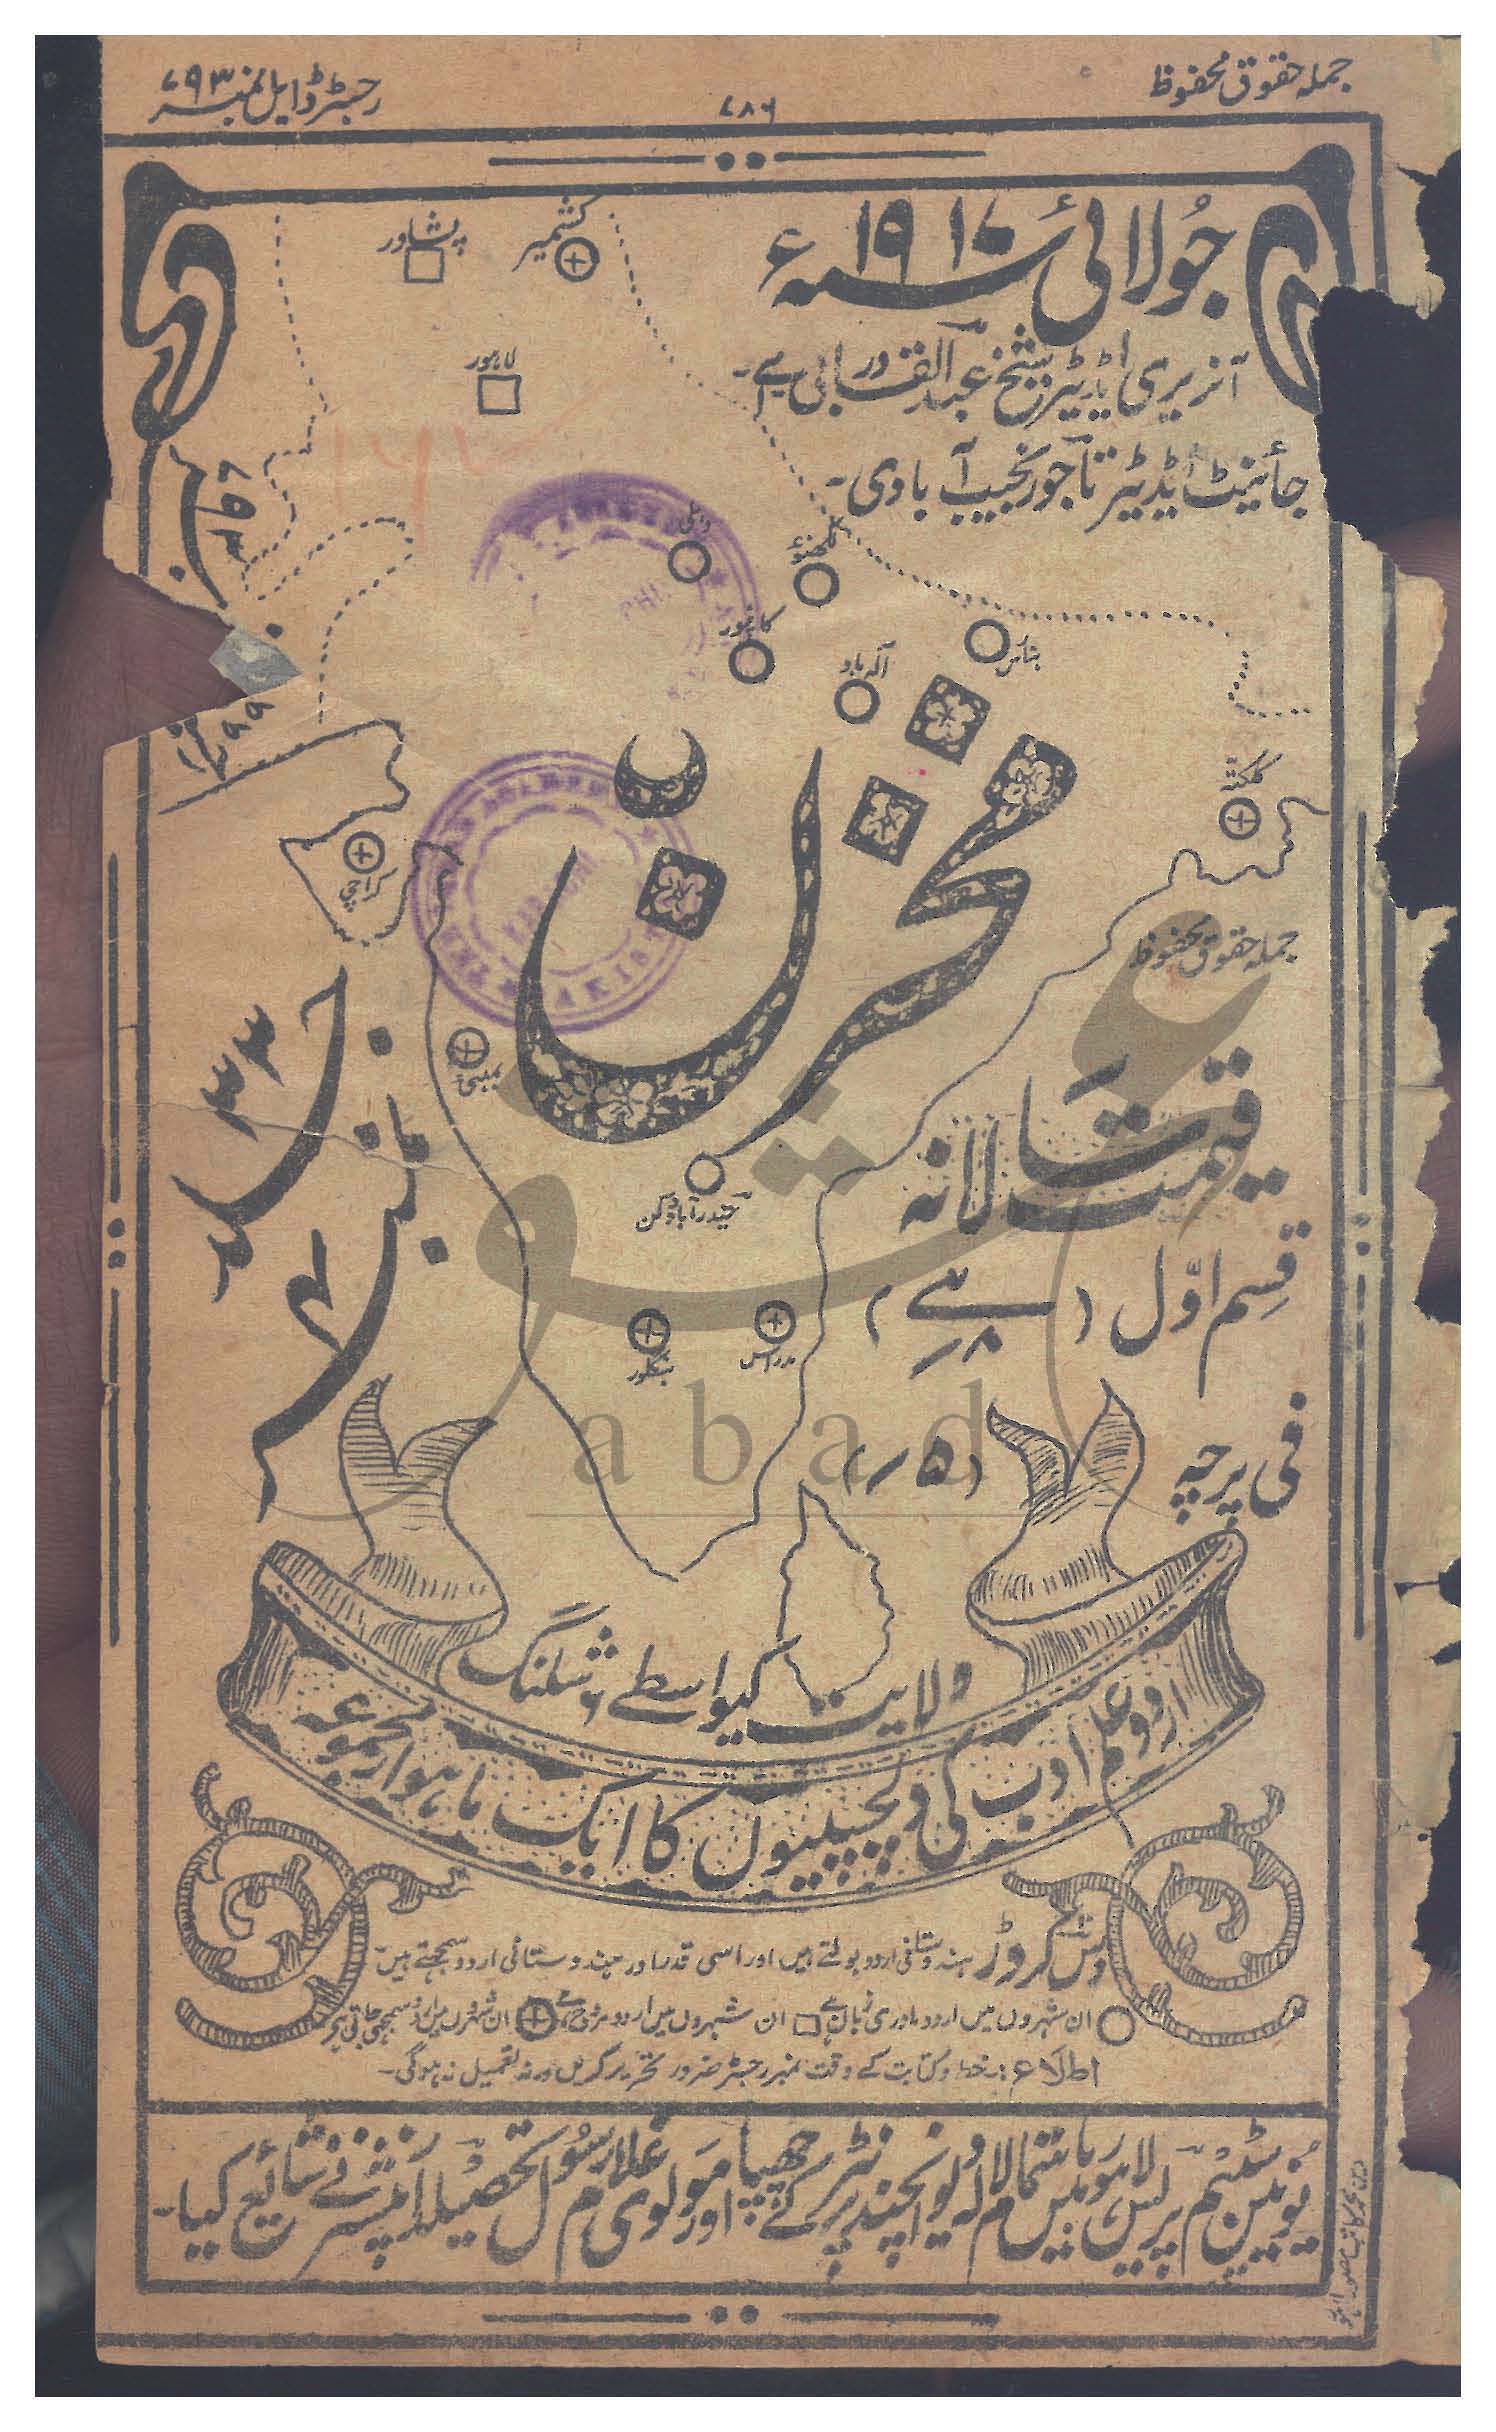 جملہ حقوق محفوظ
رجسٹرڈ ایل نمبر ۷۹۳
۷۸۶
جولائی سنہ ۱۹۱۷ء
آنریری ایڈیٹر شیخ عبدالقادر بی اے۔
جائینٹ ایڈیٹر تاجور نجیب آبادی۔
کشمیر
پشاور
لاہور
دہلی
لکھنؤ
کانپور
الہ باد
بنارس
کلکتہ
کراچی
مخزن
جملہ حقوق محفوظ
بمبئی
حیدرآباد دکن
جلد ۳۳
نمبر ۴
قیمت سالانہ
قسم اوّل
بنگلور
مدراس
فی پرچہ (۵/)
ولایت کیواسطے ۶ شلنگ
اردو علم ادب کی دلچسپیوں کا ایک ماہوار مجموعہ
دس کروڑ ہندوستانی اردو بولتے ہیں اور اسی قدر اور ہندوستانی اردو سمجھتے ہیں
ان شہروں میں اردو مادری زبان ہے ان شہروں میں اردو مروج ہے ان شہروں میں اردو سمجھی جاتی ہے
اطلاع: خط و کتابت کے وقت نمبر رجسٹر ضرور تحریر کریں ورنہ تعمیل نہ ہوگی۔
یونین سٹیم پریس لاہور میں
چھپا اور مولوی غلام رسول تحصیلدار پنشنر نے شائع کیا۔
abad